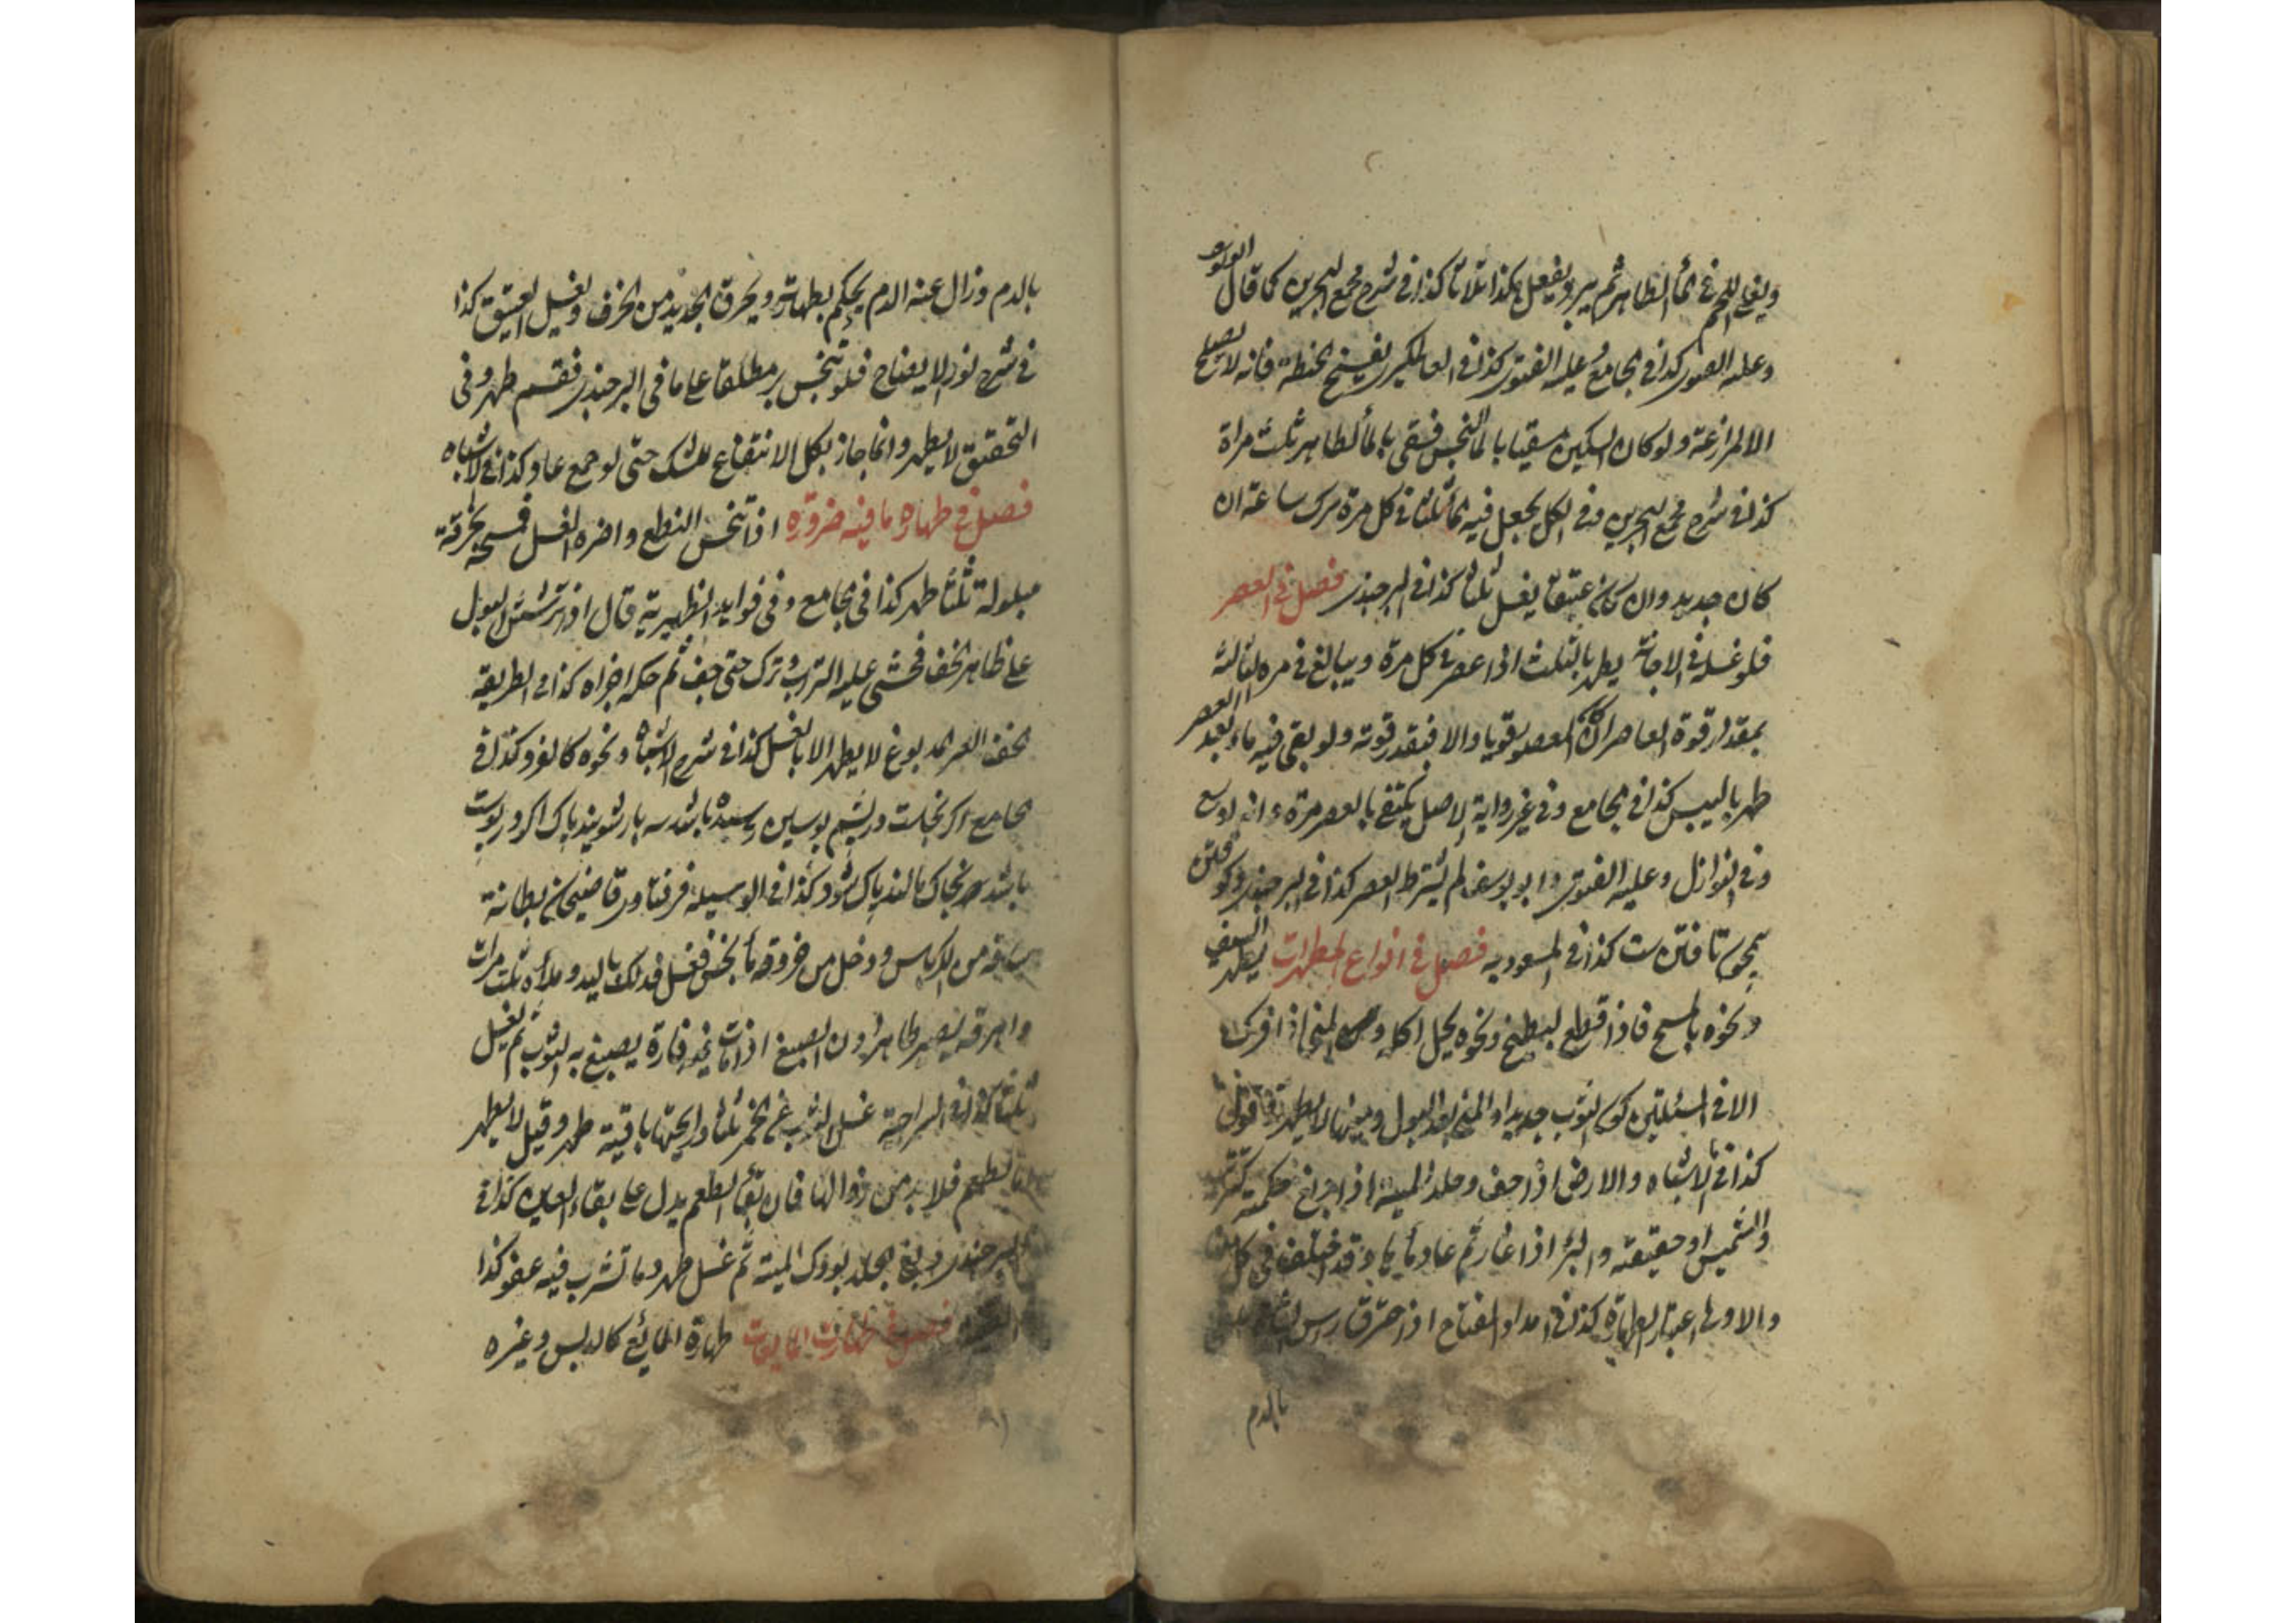 ويغلي اللحم في الماء الطاهر ثم يبرد يفعل هكذا ثلاثا كذا في شرح مجمع البحرين كما قال
وعليه الفتوى كذا في الجامع وعليه الفتوى كذا في العالمكيرى الحنطة فانه لا
الا لمزارعة ولو كان السكين مسقيا بالماء النجس فسقى بالماء الطاهر ثلث مراة
كذا في شرح مجمع البحرين وفي الكل يجعل فيه ماء ثلثا في كل مرة ترك ساعة ان
كان جديد وان كان عتيقا يغسل ثلثا كذا في البرجندى فصل في العصر
فلو غسله في الاجانة يطهر بالثلث اذا عصر في كل مرة ويبالغ في مرة الثالثة
بمقدار قوة العاصر ان كان المعصور قويا والا فبقدر قوته ولو بقى فيه ماء بعد العصر
طهر باليبس كذا في الجامع وفي غير رواية الاصل يكتفى بالعصر مرة وانه اوسع
وفي النوازل وعليه الفتوى وابو يوسف لم يشترط العصر كذا في البرجندى
كذا في المسعوديه فصل في انواع المطهرات يطهر السيف
ونحوه بالمسح فاذا قطع البطيخ ونحوه يحل اكله والمنى اذا افرك
الا في المسئلتين كون الثوب جديدا والمنى بعد البول
كذا في الاشباه والارض اذا جف وجلد الميتة اذا دبغ حكمية كتتريب
والتشميس او حقيقية والبئر اذا غار ثم عاد ماءها وقد اختلف في كل
والاولى اعتبار الطهارة كذا في امداد الفتاح اذا احترق راس الشاة
بالدم
بالدم وزال عنه الدم يحكم بطهارته ويحرق الجديد من الخزف ويغسل العتيق كذا
في شرح نور الايضاح فلو تنجس بر مطلقا على ما في البرجندى فقسم طهر وفي
التحقيق لا يطهر وانما جاز بكل الانتفاع للشك حتى لو جمع عاد كذا في الاشباه
فصل في طهارة ما فيه ضرورة اذا تنجس النطع واضره الغسل فمسحه بخرقة
مبلولة ثلثا طهر كذا في الجامع وفي فوايد الظهيرية قال اذا ترشش البول
على ظاهر الخف فحثى عليه التراب وترك حتى جف ثم حكه اجزاه كذا في الطريقة
الخف الغير المدبوغ لا يطهر الا بالغسل كذا في شرح الاشباه ونحوه كالفرو كذا في
الجامع اكر نجاست در پشم پوستين رسيده باشد سه بار شويند پاك اكر در پوست
باشد بخاك مالند پاك شود كذا في الوسيلة في فتاوى قاضيخان بطانة
ساقه من الكرباس ودخل من خروقه ماء نجس فغسل فدلك باليد وملأه ثلث مرات
واهرقه يصير طاهرا ودن الصبغ اذا مات فيه فارة يصبغ به الثوب ثم يغسل
ثلثا كذا في السراجية غسل الثوب عن الخمر ثلثا ورايحتها باقية طهر وقيل لا يطهر
اما الطعم فلا بد من زوالها فان بقاء الطعم يدل على بقاء العين كذا في
البرجندى دبغ الجلد بودك الميتة ثم غسل طهر وما تشرب فيه عفو كذا
فصل في طهارت المايعات طهارة المائع كالدبس وغيره